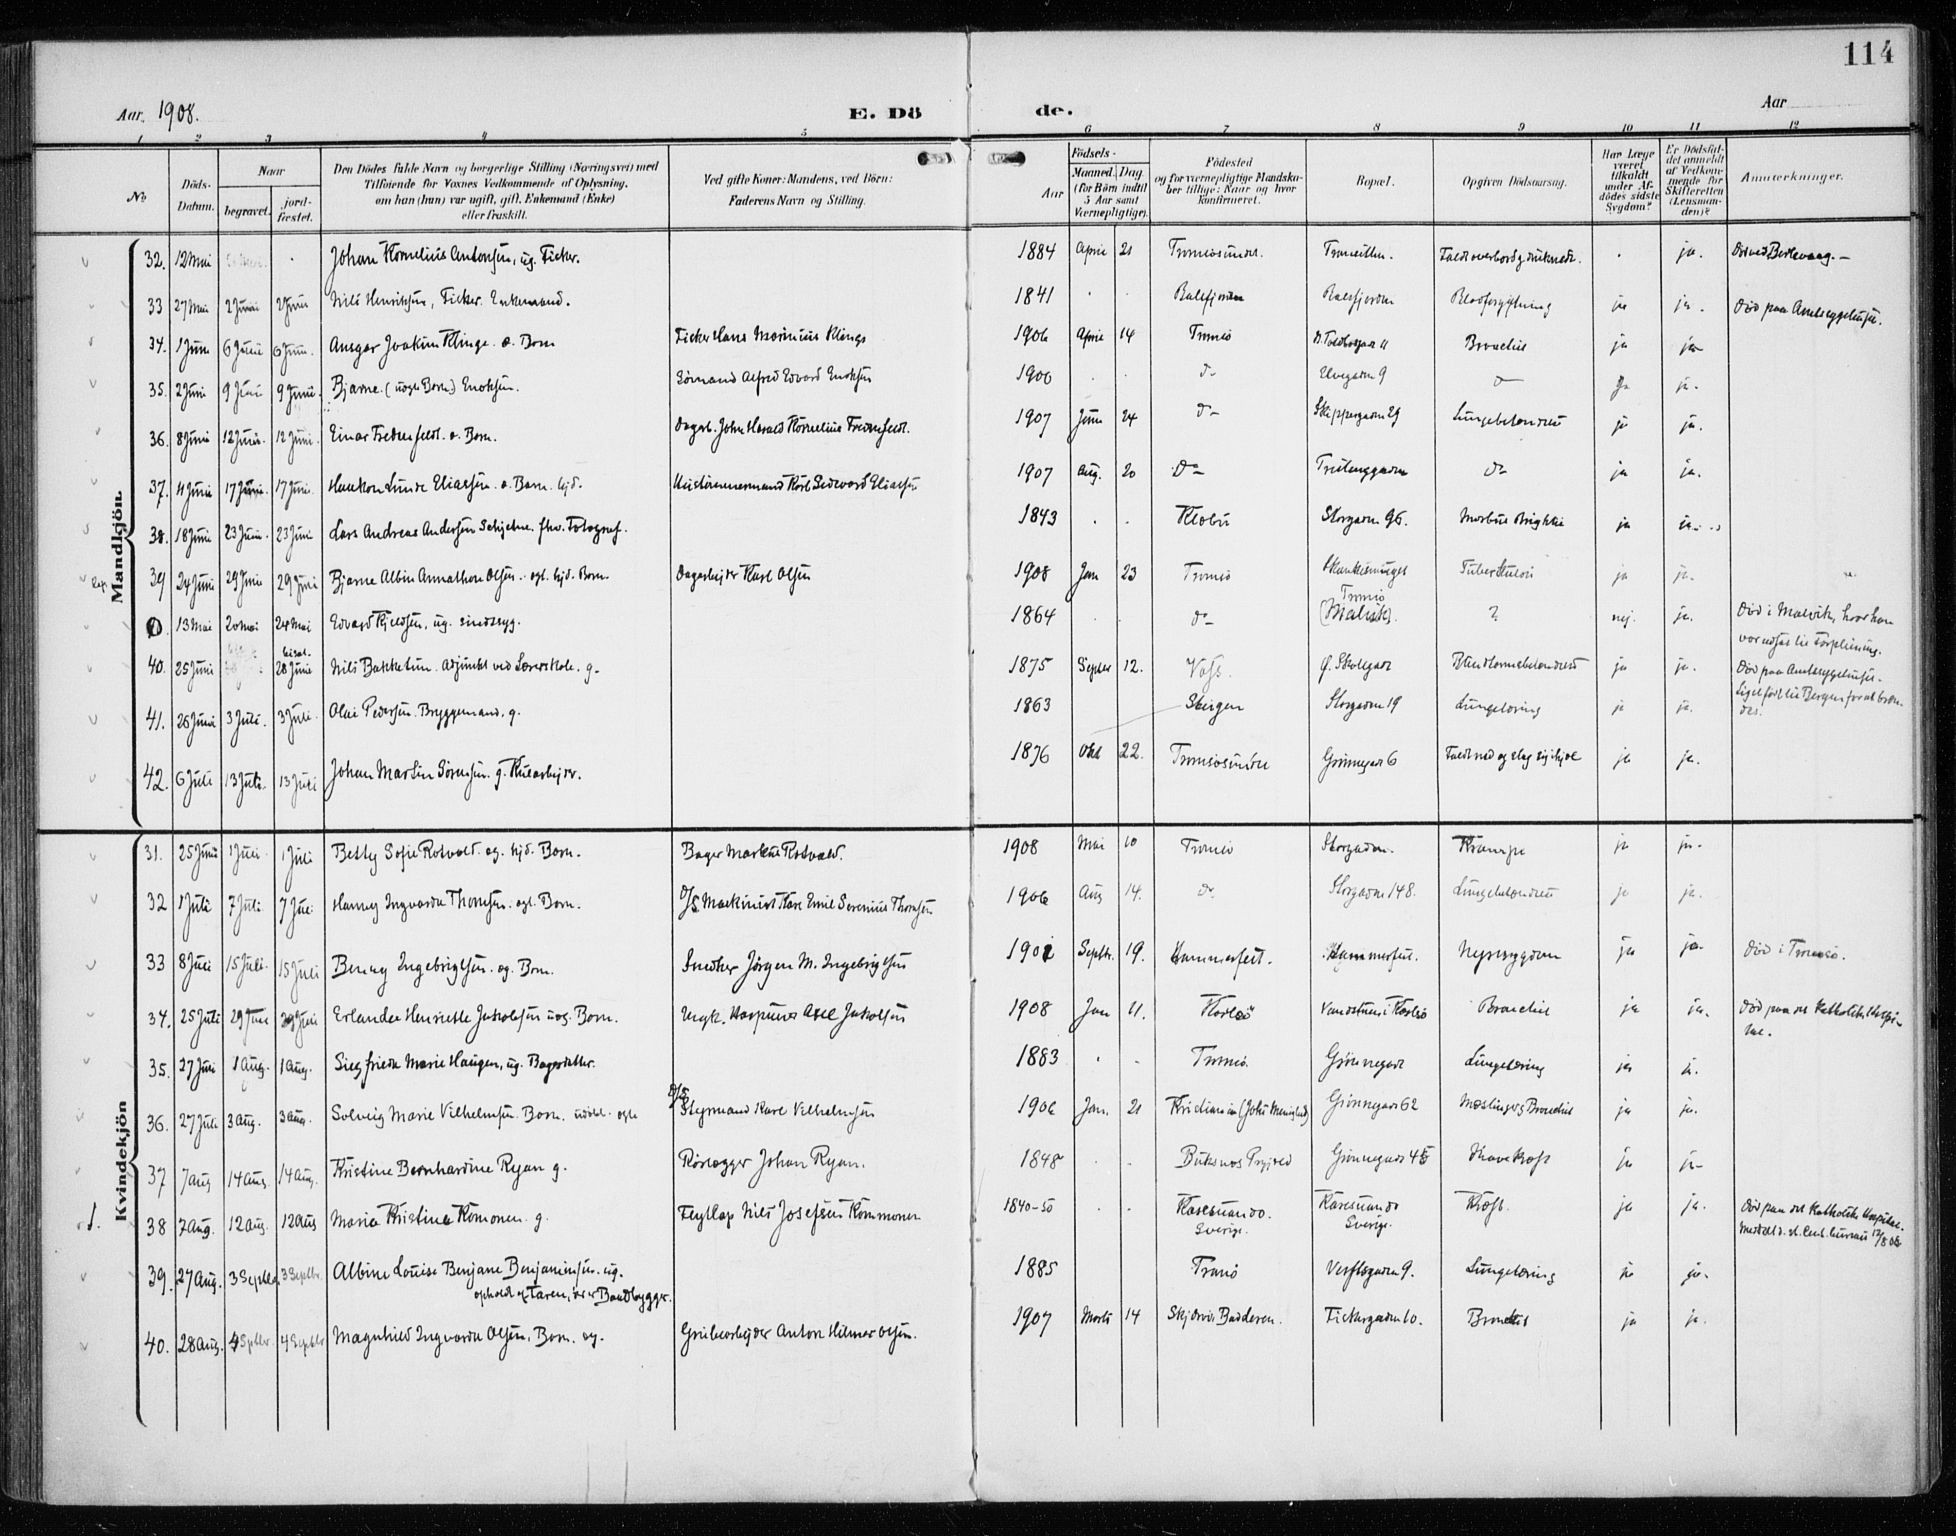 114
Aar 1908.
E. Dö de.
Aar
1 2 3 4 5 6 7 8 9 10 11 12
No
Döds-Datum.
Naar
begravet.
jord-fæstet.
Den Dödes fulde Navn og borgerlige Stilling (Næringsvei) med
Tilföiende for Voxnes Vedkommende af Oplysning,
om han (hun) var ugift, gift, Enkemand (Enke)
eller fraskilt.
Ved gifte Koner: Mandens, ved Börn:
Faderens Navn og Stilling.
Födsels-
Aar
Maaned. Dag.
(for Börn indtil
5 Aar samt
Værnepligtige).
Födested
og for værnepligtige Mandska-
ber tillige: Naar og hvor
konfirmeret.
Bopæl.
Opgiven Dödsaarsag.
Har Læge
været
tilkaldt
under Af-
dödes sidste
Sygdom?
Er Dödsfal-
det anmeldt
af Vedkom-
mende for
Skifteretten
(Lensman-
den)?
Anmærkninger.
Mandkjön
32. 12 Mai Johan Kornelius Antonsen, ug. Fisker. 1884 April 21 Tromsösundet. Faldt overbord og druknede. ja.
33 27 Mai 2 Juni 2 Juni Nils Henriksen, Fisker. Enkemand. 1841 Balsfjorden Balsfjorden Blodforgiftning ja ja. Död paa Amtssygehuset.
34. 1 Juni 6 Juni 6 Juni. Ansgar Joakim Klinge. æ. Barn Fisker Hans Marinius Klinge 1906 April 14 Tromsö Bronchit ja ja
35. 2 Juni 9 Juni 9 Juni. Bjarne (uægte Barn) Enoksen. Sömand Alfred Edvard Enoksen 1906 do Elvegaden 9 do ja ja.
36. 8 Juni 12 Juni. 12 Juni. Einar Fredenfeldt. æ. Barn. Dagarb. John Harald Kornelius Fredenfeldt. 1907 Juni 24 do Skippergaden 29 Lungebetændelse ja ja.
37. 11 Juni 17 Juni. 17 Juni. Haakon Lunde Eliassen. æ. Barn. hjd. Karl Sedevard Eliassen 1907 Aug. 20 do do ja ja.
38. 18 Juni 23 Juni. 23 Juni Lars Andreas Andersen Schjelne. fhv. Fotograf. 1843 Klæbu Storgaden 96. Morbus Brightii ja ja
39 24 Juni 29 Juni 29 Juni Bjarne Albin Annathon Olsen. ægt. hjd. Barn. Dagarbejder Karl Olsen 1908 Jan 23 Tromsö Tuberkulose ja ja.
13 Mai 20 Mai 24 Mai Edvard Kjeldsen, ug. sindssyg. 1864 do Tromsö (Malvik). ? nej. ja. Död i Malvik, hvor han
var udsat til Forpleining.
40. 25 Juni 28 Juni Nils Bakketun. Adjunkt ved Lærerskole. g. 1875 Septbr 12. Voss. Ø. Skolegade Blindtarmsbetændelse ja ja. Död paa Amtssygehuset.
Liget ført til Bergen for at bræn-
des.
41. 26 Juni 3 Juli. 3 Juli. Olai Pedersen. Bryggemand. g. 1863 Bergen Storgaden 19 Lungetæring ja ja.
42. 6 Juli 13 Juli. 13 Juli Johan Martin Sörensen. g. Kularbejder. 1876 Okt 22. Tromsösundet Grönnegade 6 Faldt ned og slog sig ihjel ja ja.
Kvindekjön
31. 25 Juni 1 Juli 1 Juli Betsy Sofie Rotvold. æg. hjd. Barn. Bager Markus Rotvold. 1908 Mai 10 Tromsö Storgaden. Krampe ja ja.
32 1 Juli 7 Juli. 7 Juli Hanny Ingvarda Thomsen. ægt. Barn. D/S Maskinist Karl Emil Serenius Thomsen 1906 Aug 14. do Storgaden 148. Lungebetændelse ja ja.
33 8 Juli 15 Juli. 15 Juli Benny Ingebrigtsen. æg. Barn. Snedker Jörgen M. Ingebrigtsen 1901 Septbr. 19. Hammerfest. Hammerfest. Nyresygdom ja ja. Död i Tromsö.
34. 25 Juli 29 Juni 29 Juni Erlanda Henriette Jakobsen uæg. Barn. Ungk. Harpuner Axel Jakobsen 1908 Jan 11. Karlsö Vandstuen i Karlsö Bronchit ja ja. Död paa det Katholske Hospi-
tal.
35. 27 Juli 1 Aug. 1 Aug. Siegfrieda Marie Haugen, ug. Bagerdatter. 1883 Tromsö. Grönnegade Lungetæring ja ja.
36. 27 Juli 3 Aug. 3 Aug. Solveig Marie Vilhelmsen. Barn. udöbt. ægte D/S Styrmand Karl Vilhelmsen 1906 Jan. 21 Kristiania (Joh. Menighed) Grönnegade 62 Mæslinger & Bronchit ja ja.
37 7 Aug 14 Aug. 14 Aug. Kristine Bernhardine Ryan g. Rörlægger Johan Ryan. 1848 Buksnes Prgjeld Grönnegade 45 Mavekræft ja ja
38 7 Aug. 12 Aug. 12 Aug Maria Kristina Komonen. g. Flytlap Nils Josefsen Kommonen 1840-50 Karesuando. Sverige. Karesuando Sverige. Kræft. ja ja. Död paa det Katholske Hospital.
Meddelt d. st. Cent. bureau 12/8 08
39. 27 Aug. 3 Septbr 3 Septbr. Albine Louise Benjane Benjaminsen. ug.
opholdt sig hos Faren, der er Baadbygger. 1885 Tranö Verftsgaden 9. Lungetæring ja ja.
40. 28 Aug. 4 Septbr. 4 Septbr Magnhild Ingvarda Olsen, Barn. æg. Grubearbejder Anton Hilmar Olsen. 1907 Marts 14 Skjervö, Badderen. Fiskergaden 10. Bronchit ja ja.